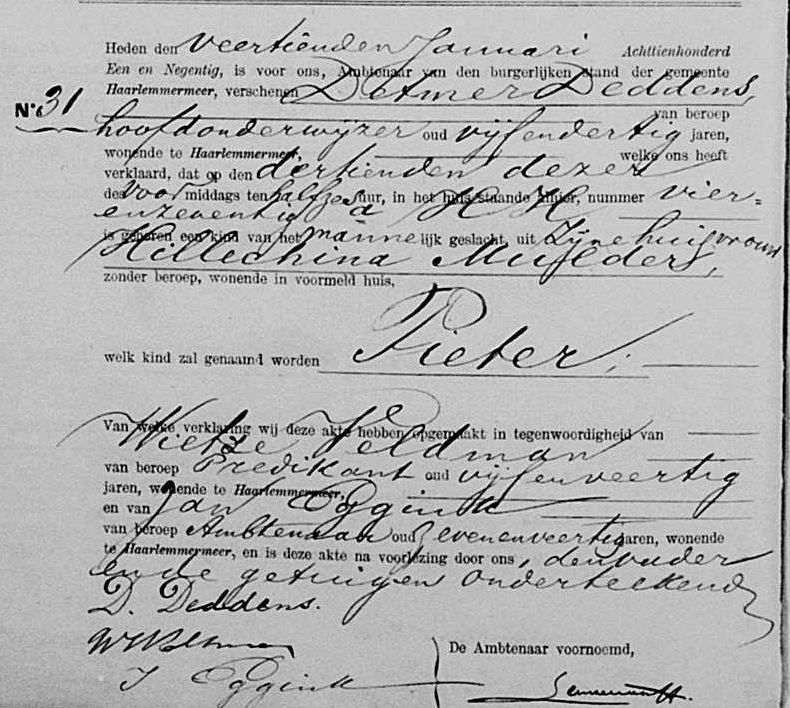 Heden den veertienden Januari Achttienhonderd
Een en Negentig, is voor ons, Ambtenaar van den burgerlijken stand der gemeente
Haarlemmermeer, verschenen Detmer Deddens,
No. 31
van beroep
hoofdonderwijzer oud vijfendertig jaren,
wonende te Haarlemmermeer, welke ons heeft
verklaard, dat op den dertienden dezer
des voormiddags ten half zes ure, in het huis staande alhier, nummer vier=
enzeventig a H H
is geboren een kind van het mannelijk geslacht, uit zijne huisvrouw
Hillechina Mulders,
zonder beroep, wonende in voormeld huis,
welk kind zal genaamd worden Pieter;
Van welke verklaring wij deze akte hebben opgemaakt in tegenwoordigheid van
Wietze Veldman
van beroep Predikant oud vijfenveertig
jaren, wonende te Haarlemmermeer,
en van Jan Eggink
van beroep Ambtenaar oud zevenenveertig jaren, wonende
te Haarlemmermeer, en is deze akte na voorlezing door ons, den vader
en de getuigen onderteekend
D. Deddens.
W Veldman
De Ambtenaar voornoemd,
J Eggink